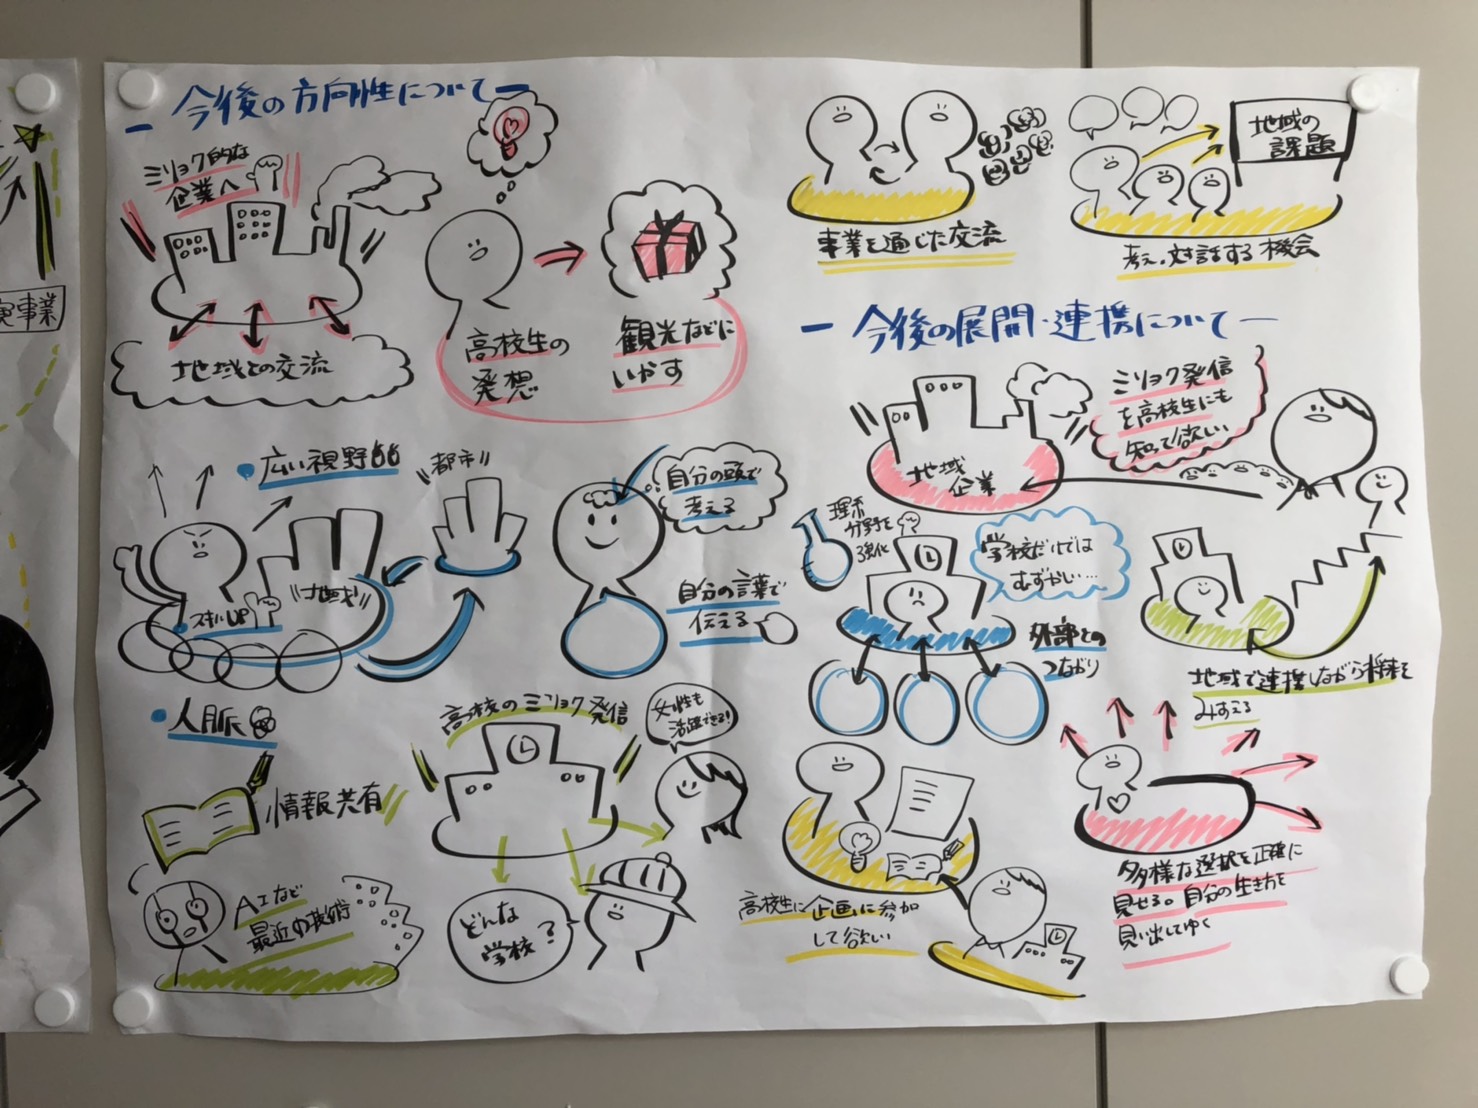 実事業
ー 今後の方向性について ー
ミリョク的な
企業へ
地域との交流
高校生の
発想
観光などに
いかす
広い視野
都市
地域
スキルUP
自分の頭で
考える
自分の言葉で
伝える
人脈
情報共有
AIなど
最近の技術
高校のミリョク発信
女性も
活躍できる!
どんな
学校?
事業を通じた交流
地域の
課題
考え、対話する機会
ー 今後の展開・連携について ー
地域
企業
ミリョク発信
を高校生にも
知って欲しい
理系
分野を
強化
学校だけでは
むずかしい…
外部との
つながり
地域で連携しながら将来を
みすえる
高校生に企画に参加
して欲しい
多様な選択を正確に
見せる。自分の生き方を
見い出してゆく